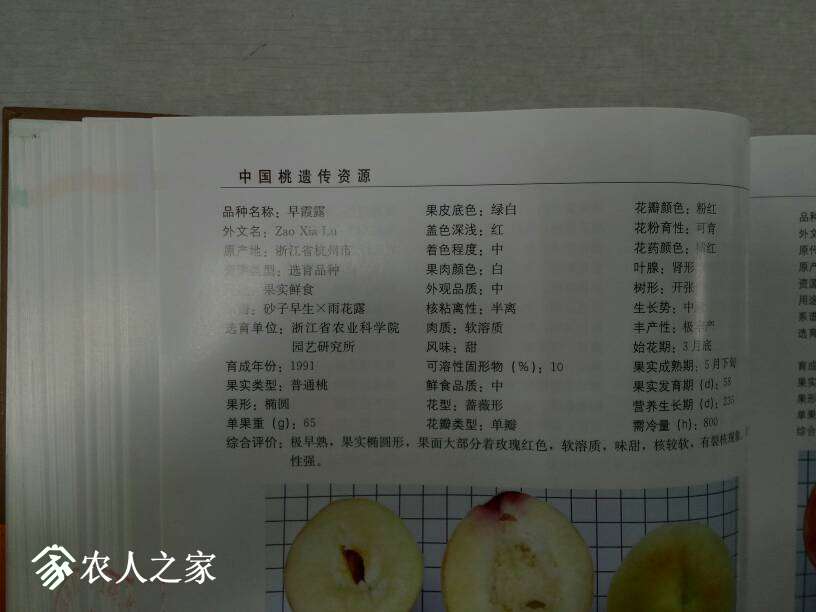 中国桃遗传资源
品种名称：早霞露 果皮底色：绿白 花瓣颜色：粉红
外文名：Zao Xia Lu 盖色深浅：红 花粉育性：可育
原产地：浙江省杭州市 着色程度：中 花药颜色：橘红
类型：选育品种 果肉颜色：白 叶腺：肾形
果实鲜食 外观品质：中 树形：开张
砂子早生×雨花露 核粘离性：半离 生长势：中
选育单位：浙江省农业科学院 肉质：软溶质 丰产性：极
园艺研究所 风味：甜 始花期：3月底
育成年份：1991 可溶性固形物（%）：10 果实成熟期：5月下旬
果实类型：普通桃 鲜食品质：中 果实发育期（d）：58
果形：椭圆 花型：蔷薇形 营养生长期（d）：235
单果重（g）：65 花瓣类型：单瓣 需冷量（h）：800
综合评价：极早熟，果实椭圆形，果面大部分着玫瑰红色，软溶质，味甜，核较软，有裂核现象，
性强。
品种
外文
原产
资源
用途
系谱
选育
育成
果实
果形
单果
综合
农人之家